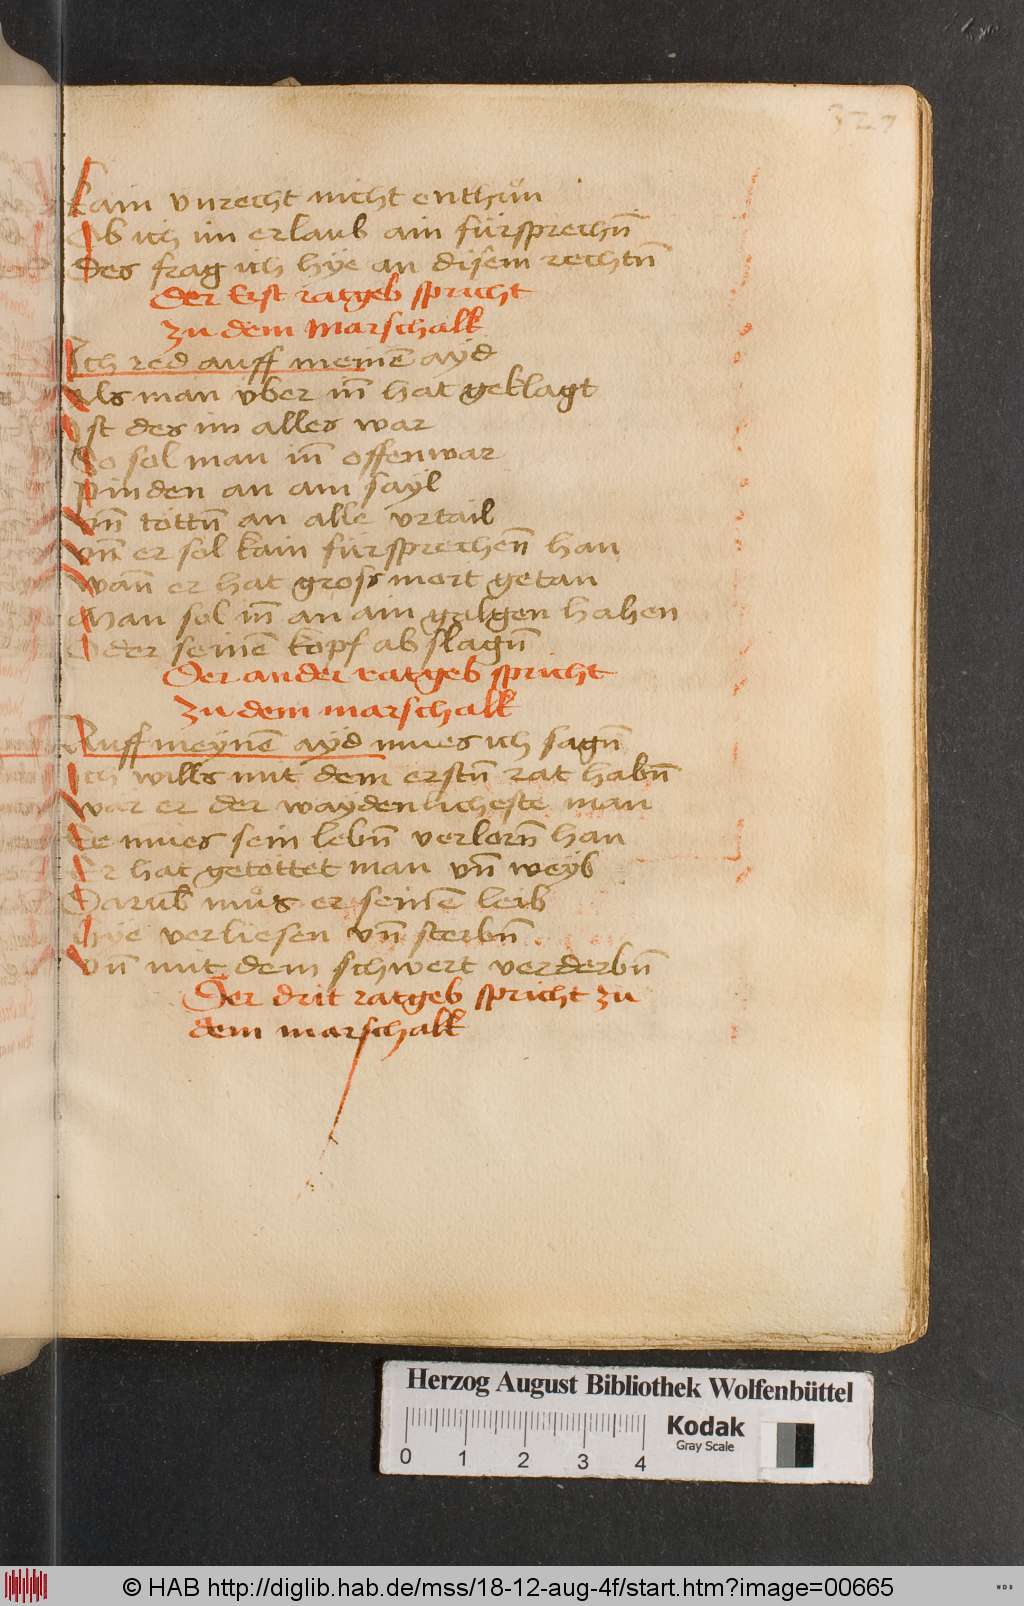 327
Kain vnrecht nicht enthůn
Ob ich im erlaub ain fürsprechn̄
Des frag ich hye an disem rechtn̄
Der Erst ratgeb spricht
zu dem Marschalk
Ich red auff meinē ayd
als man vber in̄ hat geklagt
Ist des im alles war
So sol man in̄ offenwar
pinden an ain sayl
vn̄ töttn̄ an alle vrtail
vn̄ er sol kain fürsprechen̄ han
wan̄ er hat gross mort getan
Man sol in̄ an ain galgen hahen
Oder seinē kopf ab slagn̄
Der ander ratgeb spricht
zu dem marschalk
Auff meynē ayd mues ich sagn̄
Ich wills mit dem erstn̄ rat habn̄
wär er der waydenlicheste man
Er mues sein lebn̄ verlorn̄ han
Er hat getöttet man vn̄ weyb
Darūb můs er seinē leib
hye verliesen vn̄ sterbn̄
vn̄ mit dem schwert verderbn̄
Der drit ratgeb spricht zu
dem marschalk
Herzog August Bibliothek Wolfenbüttel
Kodak
Gray Scale
0 1 2 3 4
© HAB http://diglib.hab.de/mss/18-12-aug-4f/start.htm?image=00665